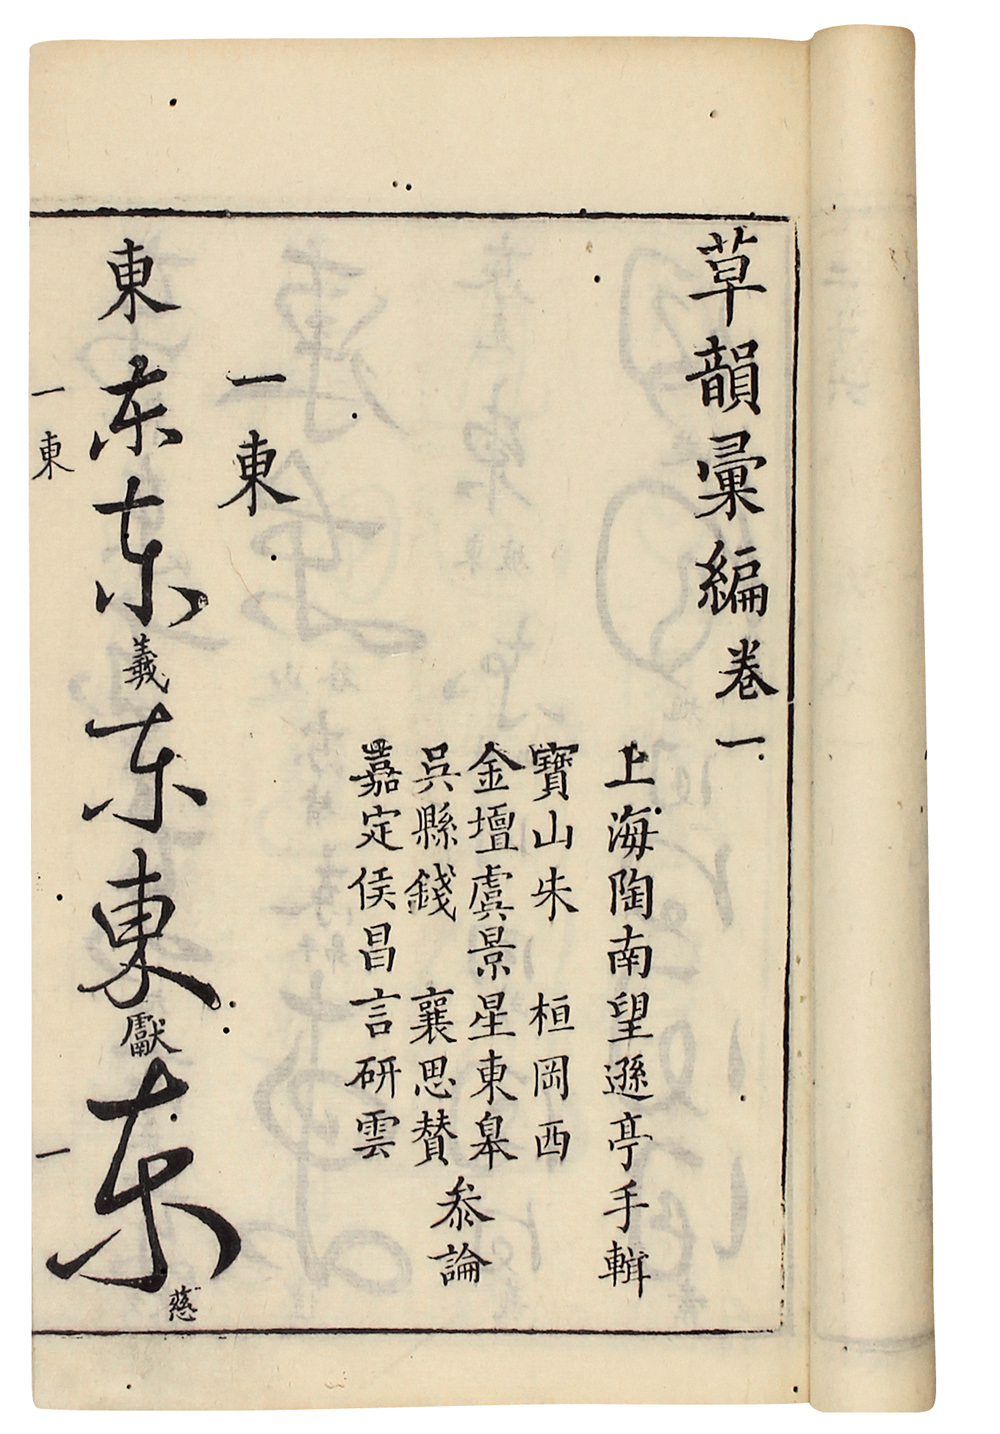 草韻彙編卷一
上海陶南望遜亭手輯
寶山朱桓岡西
金壇虞景星東皋
吳縣錢襄思贊
嘉定侯昌言研雲
叅論
一東
東东东義东東獻东慈
一東
一